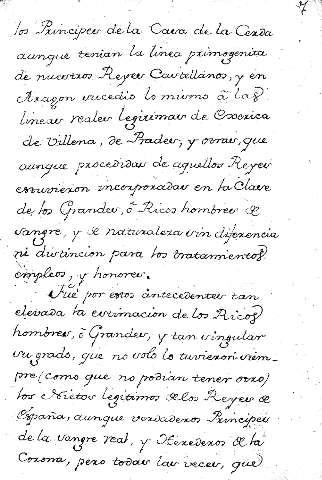 7
los Principes de la Casa de la Cerda
aunque tenian la linea primogenita
de nuestros Reyes Castellanos, y en
Aragon sucedio lo mismo â las
lineas reales legitimas de Exerica
de Villena, de Prades, y otras, que
aunque procedidas de aquellos Reyes
estuvieron incorporadas en la Clase
de los Grandes, ô Ricos hombres de
sangre, y de naturaleza sin diferencia
ni distincion para los tratamientos
empleos, y honores.
Fue por estos antecedentes tan
elevada la estimacion de los Ricos
hombres, ô Grandes, y tan singular
su grado, que no solo lo tuvieron siem-
pre (como que no podian tener otro)
los Nietos legitimos de los Reyes de
España, aunque verdaderos Principes
de la sangre real, y Herederos de la
Corona, pero todas las veces, que